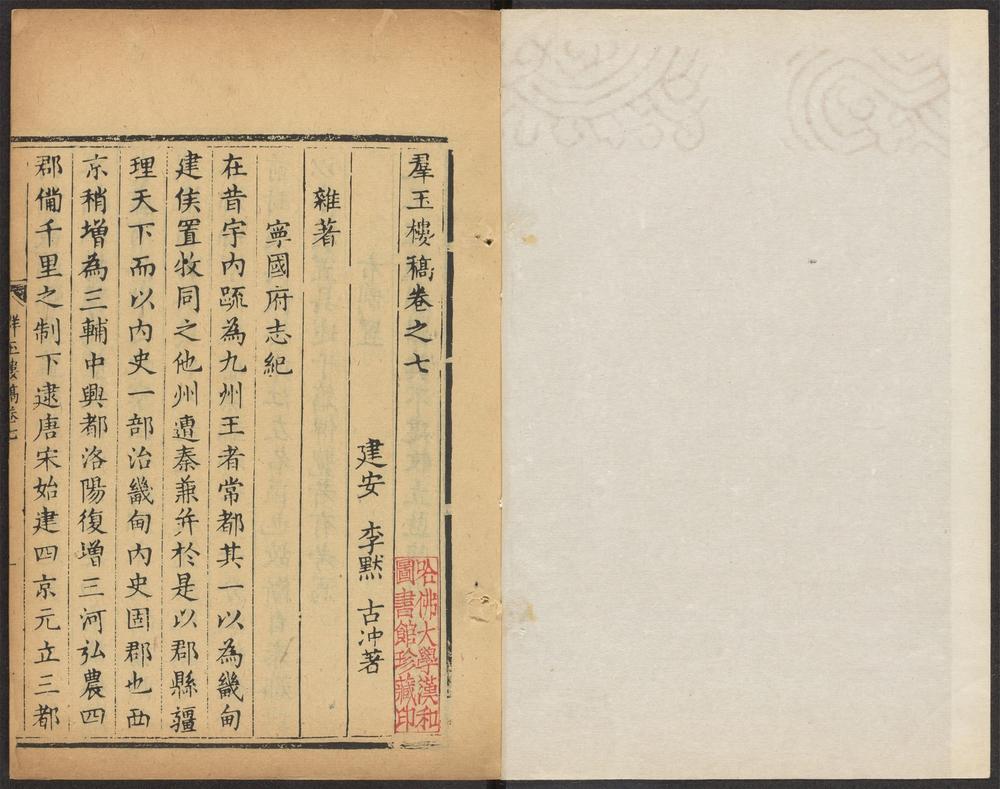 羣玉樓稿卷之七
建安 李默 古冲著
雜著
寧國府志紀
在昔宇内䟽為九州王者常都其一以為畿甸
建侯置牧同之他州遭秦兼并於是以郡縣疆
理天下而以内史一部治畿甸内史固郡也西
京稍增為三輔中興都洛陽復增三河弘農四
郡備千里之制下逮唐宋始建四京元立三都
羣玉樓稿卷七
哈佛大學漢和
圖書館珍藏印